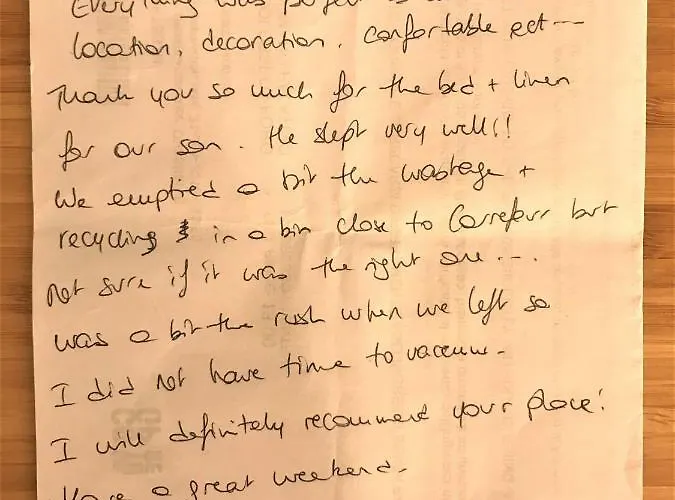 Everything was perfect
location, decoration, confortable ect---
Thank you so much for the bed + linen
for our son. He slept very well!!
We emptied a bit the wastage +
recycling in a bin close to Carrefour but
not sure if it was the right one ....
was a bit the rush when we left so
I did not have time to vacuum.
I will definitely recommend your place!
Have a great weekend.